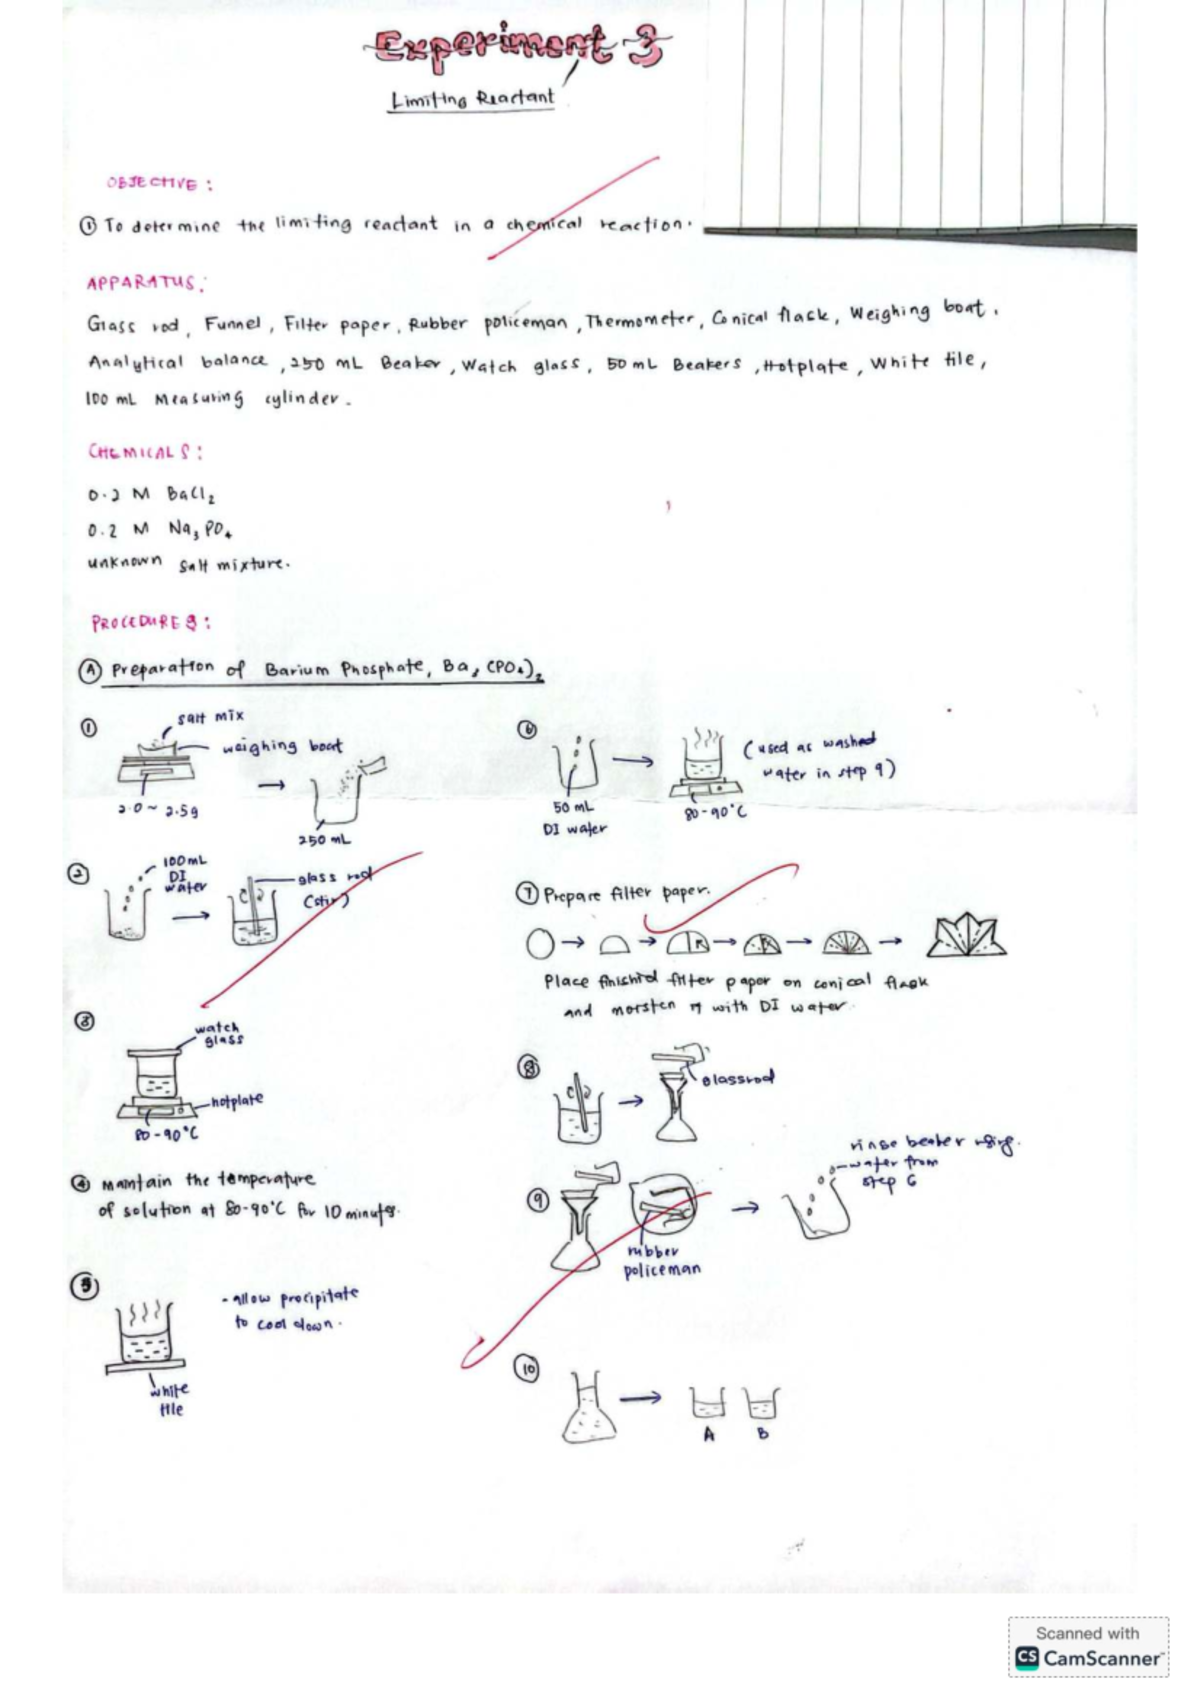 Experiment 3
Limiting Reactant
OBJECTIVE :
① To determine the limiting reactant in a chemical reaction.
APPARATUS:
Glass rod, Funnel, Filter paper, Rubber policeman, Thermometer, Conical flask, Weighing boat,
Analytical balance, 250 mL Beaker, Watch glass, 50 mL Beakers, Hotplate, White tile,
100 mL Measuring cylinder.
CHEMICALS:
0.2 M BaCl₂
0.2 M Na₃PO₄
unknown salt mixture.
PROCEDURES:
Ⓐ Preparation of Barium Phosphate, Ba₃(PO₄)₂
①
salt mix
weighing boat
2.0 ~ 2.5g
250 mL
②
100mL
DI
water
glass rod
(stir)
③
watch
glass
hotplate
80-90°C
④ maintain the temperature
of solution at 80-90°C for 10 minutes.
⑤
- allow precipitate
to cool down.
white
tile
⑥
50 mL
DI water
80-90°C
(used as washed
water in step 9)
⑦ Prepare filter paper.
Place finished filter paper on conical flask
and moisten with DI water.
⑧
glassrod
⑨
rubber
policeman
rinse beaker using
water from
step 6
⑩
A
B
Scanned with
CS CamScanner